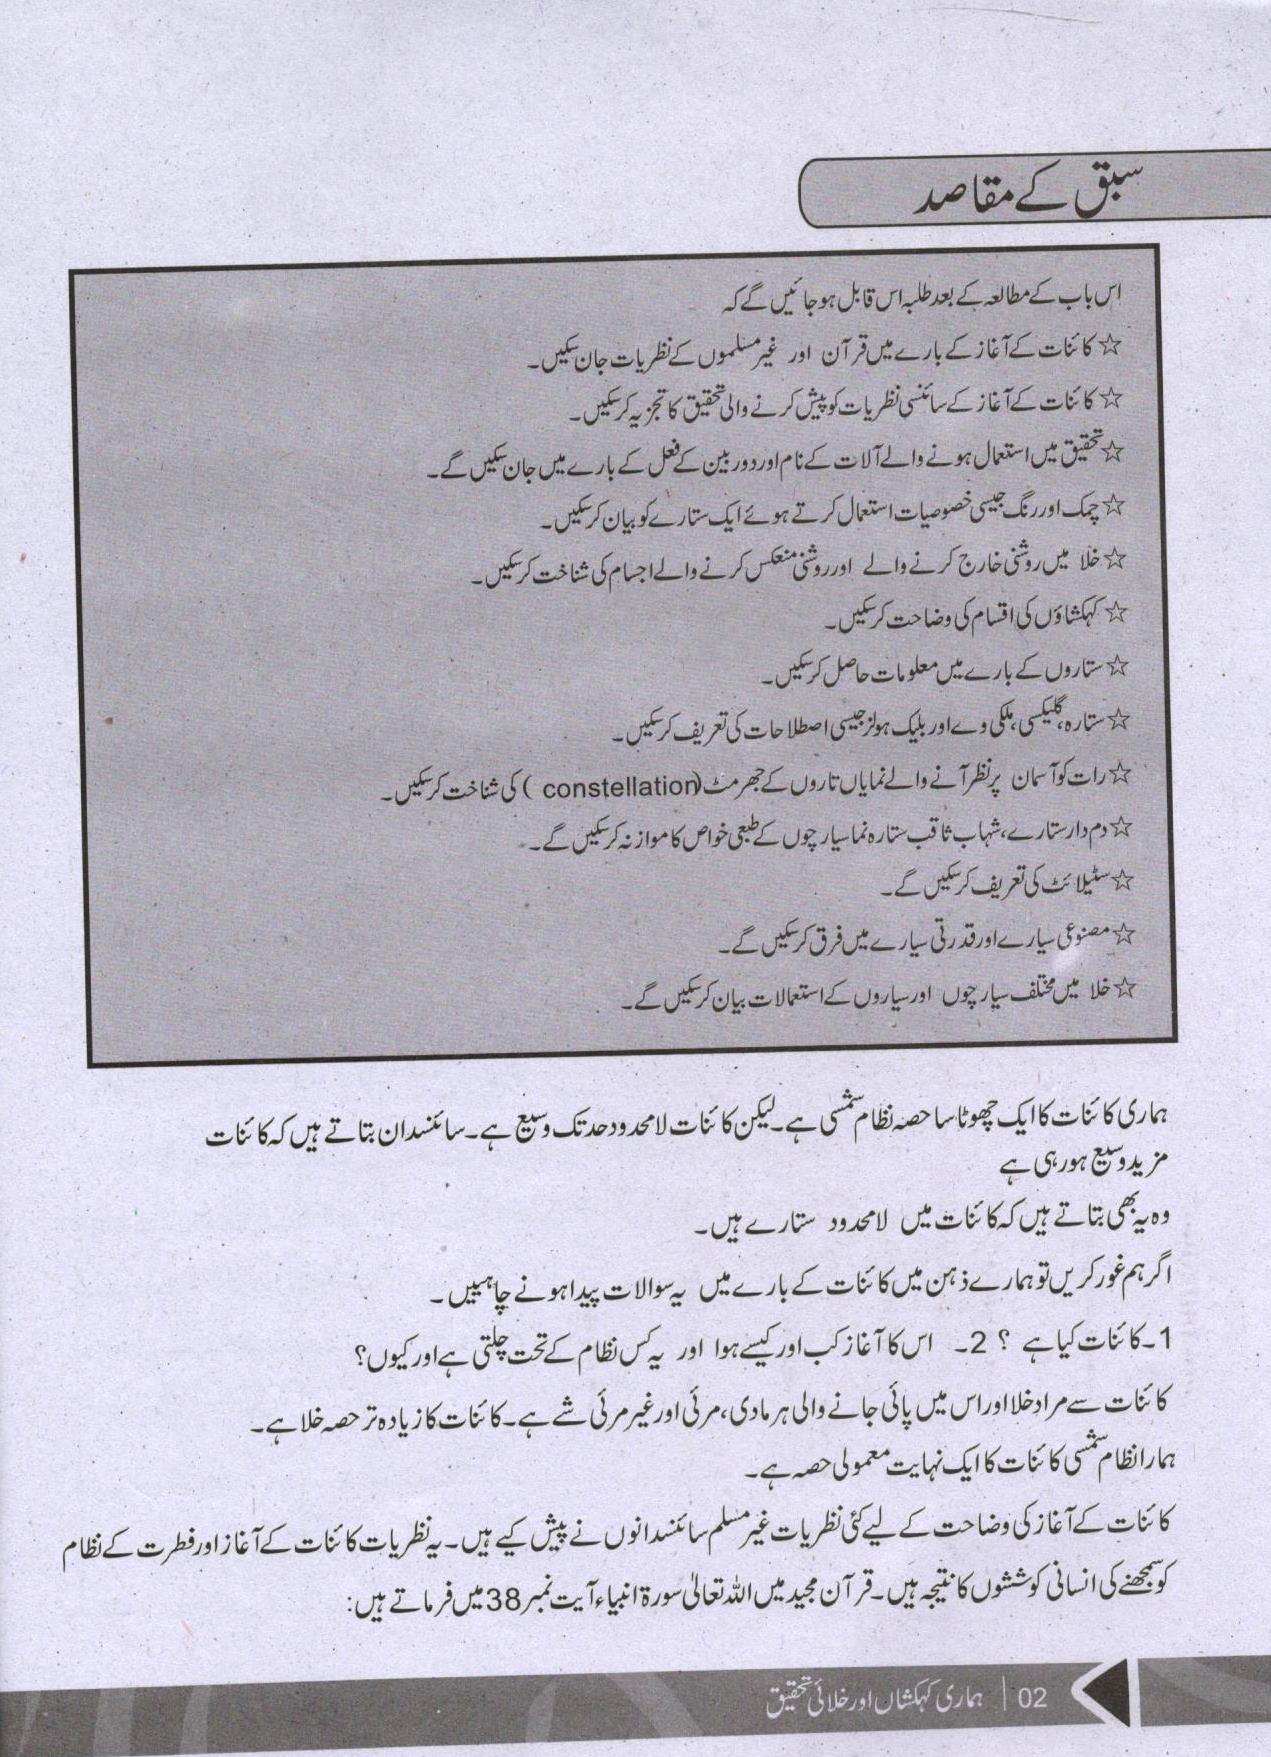 سبق کے مقاصد
اس باب کے مطالعہ کے بعد طلبہ اس قابل ہو جائیں گے کہ
☆ کائنات کے آغاز کے بارے میں قرآن اور غیر مسلموں کے نظریات جان سکیں۔
☆ کائنات کے آغاز کے سائنسی نظریات کو پیش کرنے والی تحقیق کا تجزیہ کر سکیں۔
☆ تحقیق میں استعمال ہونے والے آلات کے نام اور دوربین کے فعل کے بارے میں جان سکیں گے۔
☆ چمک اور رنگ جیسی خصوصیات استعمال کرتے ہوئے ایک ستارے کو بیان کر سکیں۔
☆ خلا میں روشنی خارج کرنے والے اور روشنی منعکس کرنے والے اجسام کی شناخت کر سکیں۔
☆ کہکشاؤں کی اقسام کی وضاحت کر سکیں۔
☆ ستاروں کے بارے میں معلومات حاصل کر سکیں۔
☆ ستارہ، گلیکسی، ملکی وے اور بلیک ہولز جیسی اصطلاحات کی تعریف کر سکیں۔
☆ رات کو آسمان پر نظر آنے والے نمایاں تاروں کے جھرمٹ (constellation) کی شناخت کر سکیں۔
☆ دم دار ستارے، شہاب ثاقب ستارہ نما سیارچوں کے طبعی خواص کا موازنہ کر سکیں گے۔
☆ سٹیلائٹ کی تعریف کر سکیں گے۔
☆ مصنوعی سیارے اور قدرتی سیارے میں فرق کر سکیں گے۔
☆ خلا میں مختلف سیارچوں اور سیاروں کے استعمالات بیان کر سکیں گے۔
ہماری کائنات کا ایک چھوٹا سا حصہ نظام شمسی ہے۔ لیکن کائنات لامحدود حد تک وسیع ہے۔ سائنسدان بتاتے ہیں کہ کائنات
مزید وسیع ہو رہی ہے
وہ یہ بھی بتاتے ہیں کہ کائنات میں لامحدود ستارے ہیں۔
اگر ہم غور کریں تو ہمارے ذہن میں کائنات کے بارے میں یہ سوالات پیدا ہونے چاہییں۔
1۔ کائنات کیا ہے ؟ 2۔ اس کا آغاز کب اور کیسے ہوا اور یہ کس نظام کے تحت چلتی ہے اور کیوں؟
کائنات سے مراد خلا اور اس میں پائی جانے والی ہر مادی، مرئی اور غیر مرئی شے ہے۔ کائنات کا زیادہ تر حصہ خلا ہے۔
ہمارا نظام شمسی کائنات کا ایک نہایت معمولی حصہ ہے۔
کائنات کے آغاز کی وضاحت کے لیے کئی نظریات غیر مسلم سائنسدانوں نے پیش کیے ہیں۔ یہ نظریات کائنات کے آغاز اور فطرت کے نظام
کو سمجھنے کی انسانی کوششوں کا نتیجہ ہیں۔ قرآن مجید میں اللہ تعالیٰ سورۃ انبیاء آیت نمبر 38 میں فرماتے ہیں:
02 | ہماری کہکشاں اور خلائی تحقیق